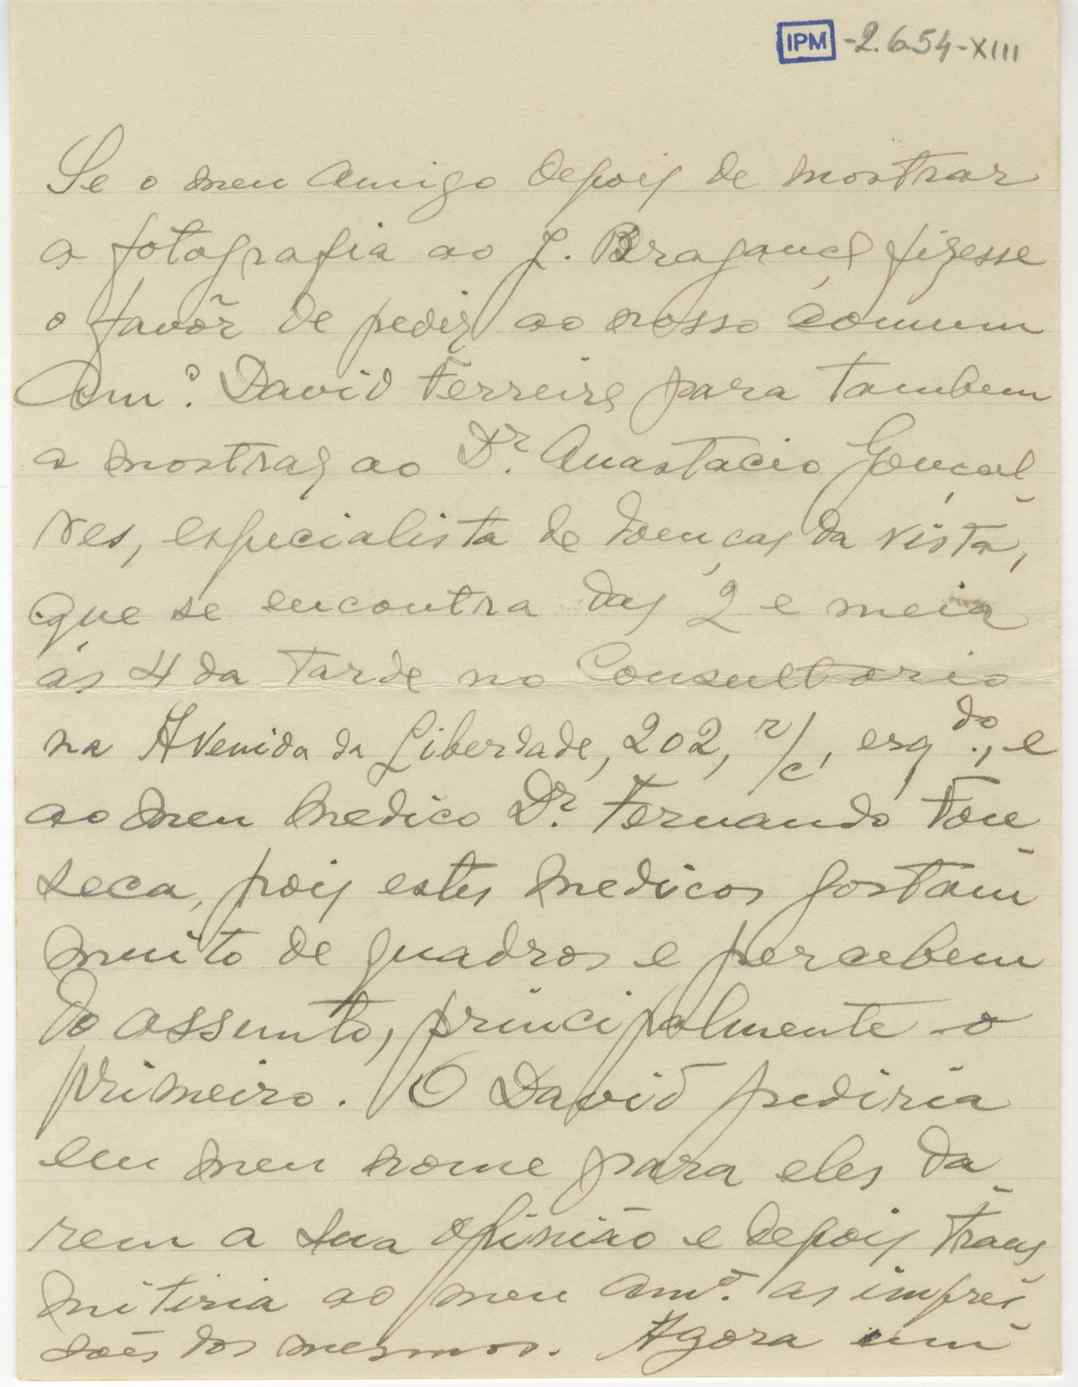 IPM -2.654-XIII
Se o meu amigo depois de mostrar
a fotografia ao J. Bragança fizesse
o favôr de pedir ao nosso comum
Am.º David Ferreira para tambem
a mostrar ao Dr. Anastacio Gonçal-
ves, especialista de doenças da vista,
que se encontra das 2 e meia
ás 4 da tarde no Consultorio
na Avenida da Liberdade, 202, r/c, esq.do, e
ao meu medico Dr. Fernando Fon-
seca, pois estes medicos gostam
muito de quadros e percebem
do assunto, principalmente o
primeiro. O David pediria
em meu nome para eles da-
rem a sua opinião e depois trans-
mitiria ao meu Am.º as impres-
sões dos mesmos. Agora um